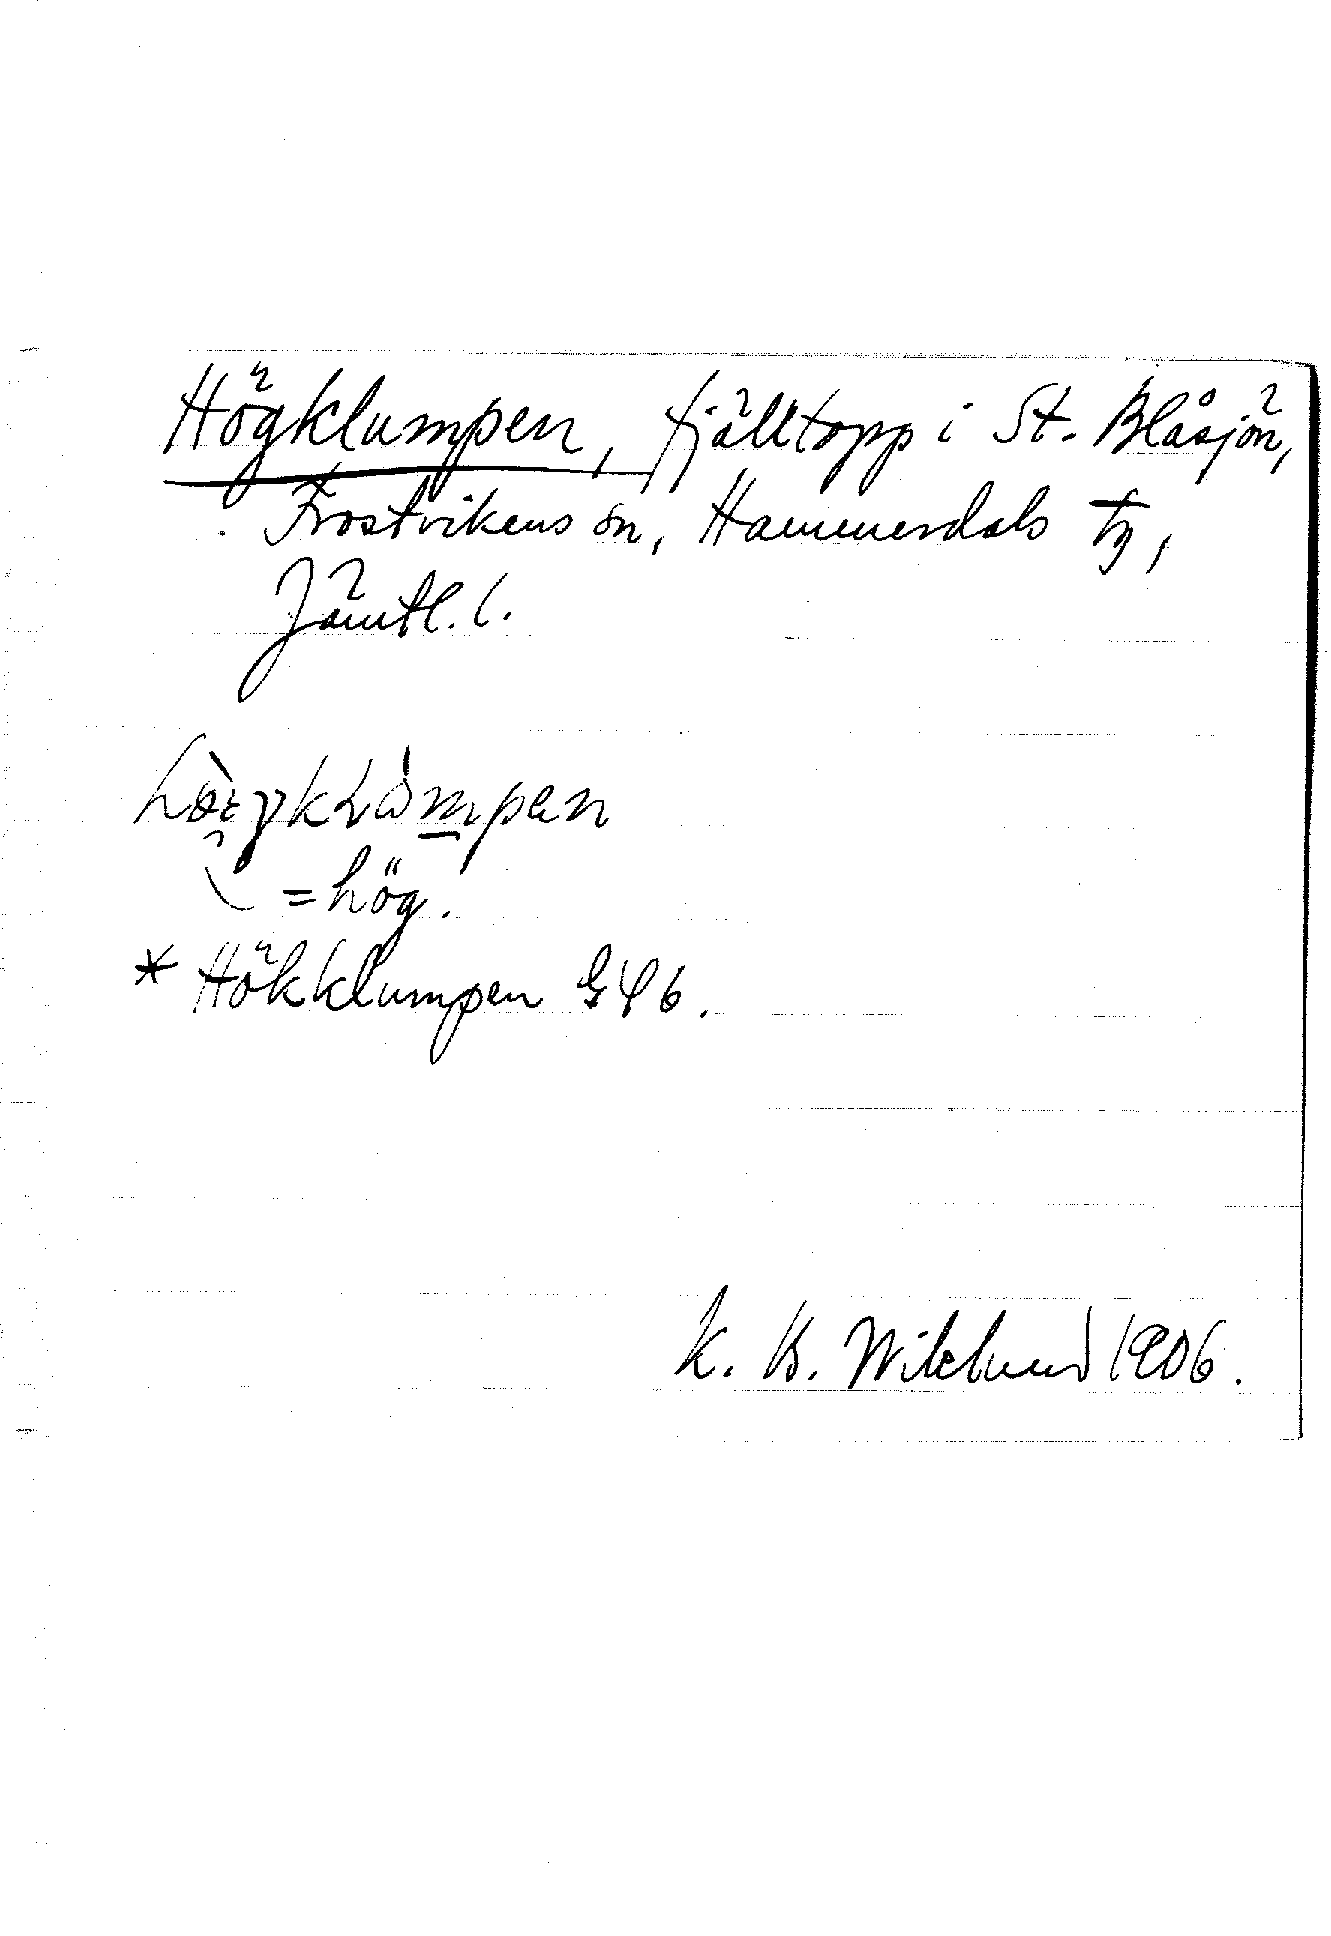 Högklumpen, fjälltopp i St. Blåsjön,
Frostvikens sn, Hammerdals tg,
Jämtl. l.
= hög.
* Hökklumpen G46.
K. B. Wiklund 1906.